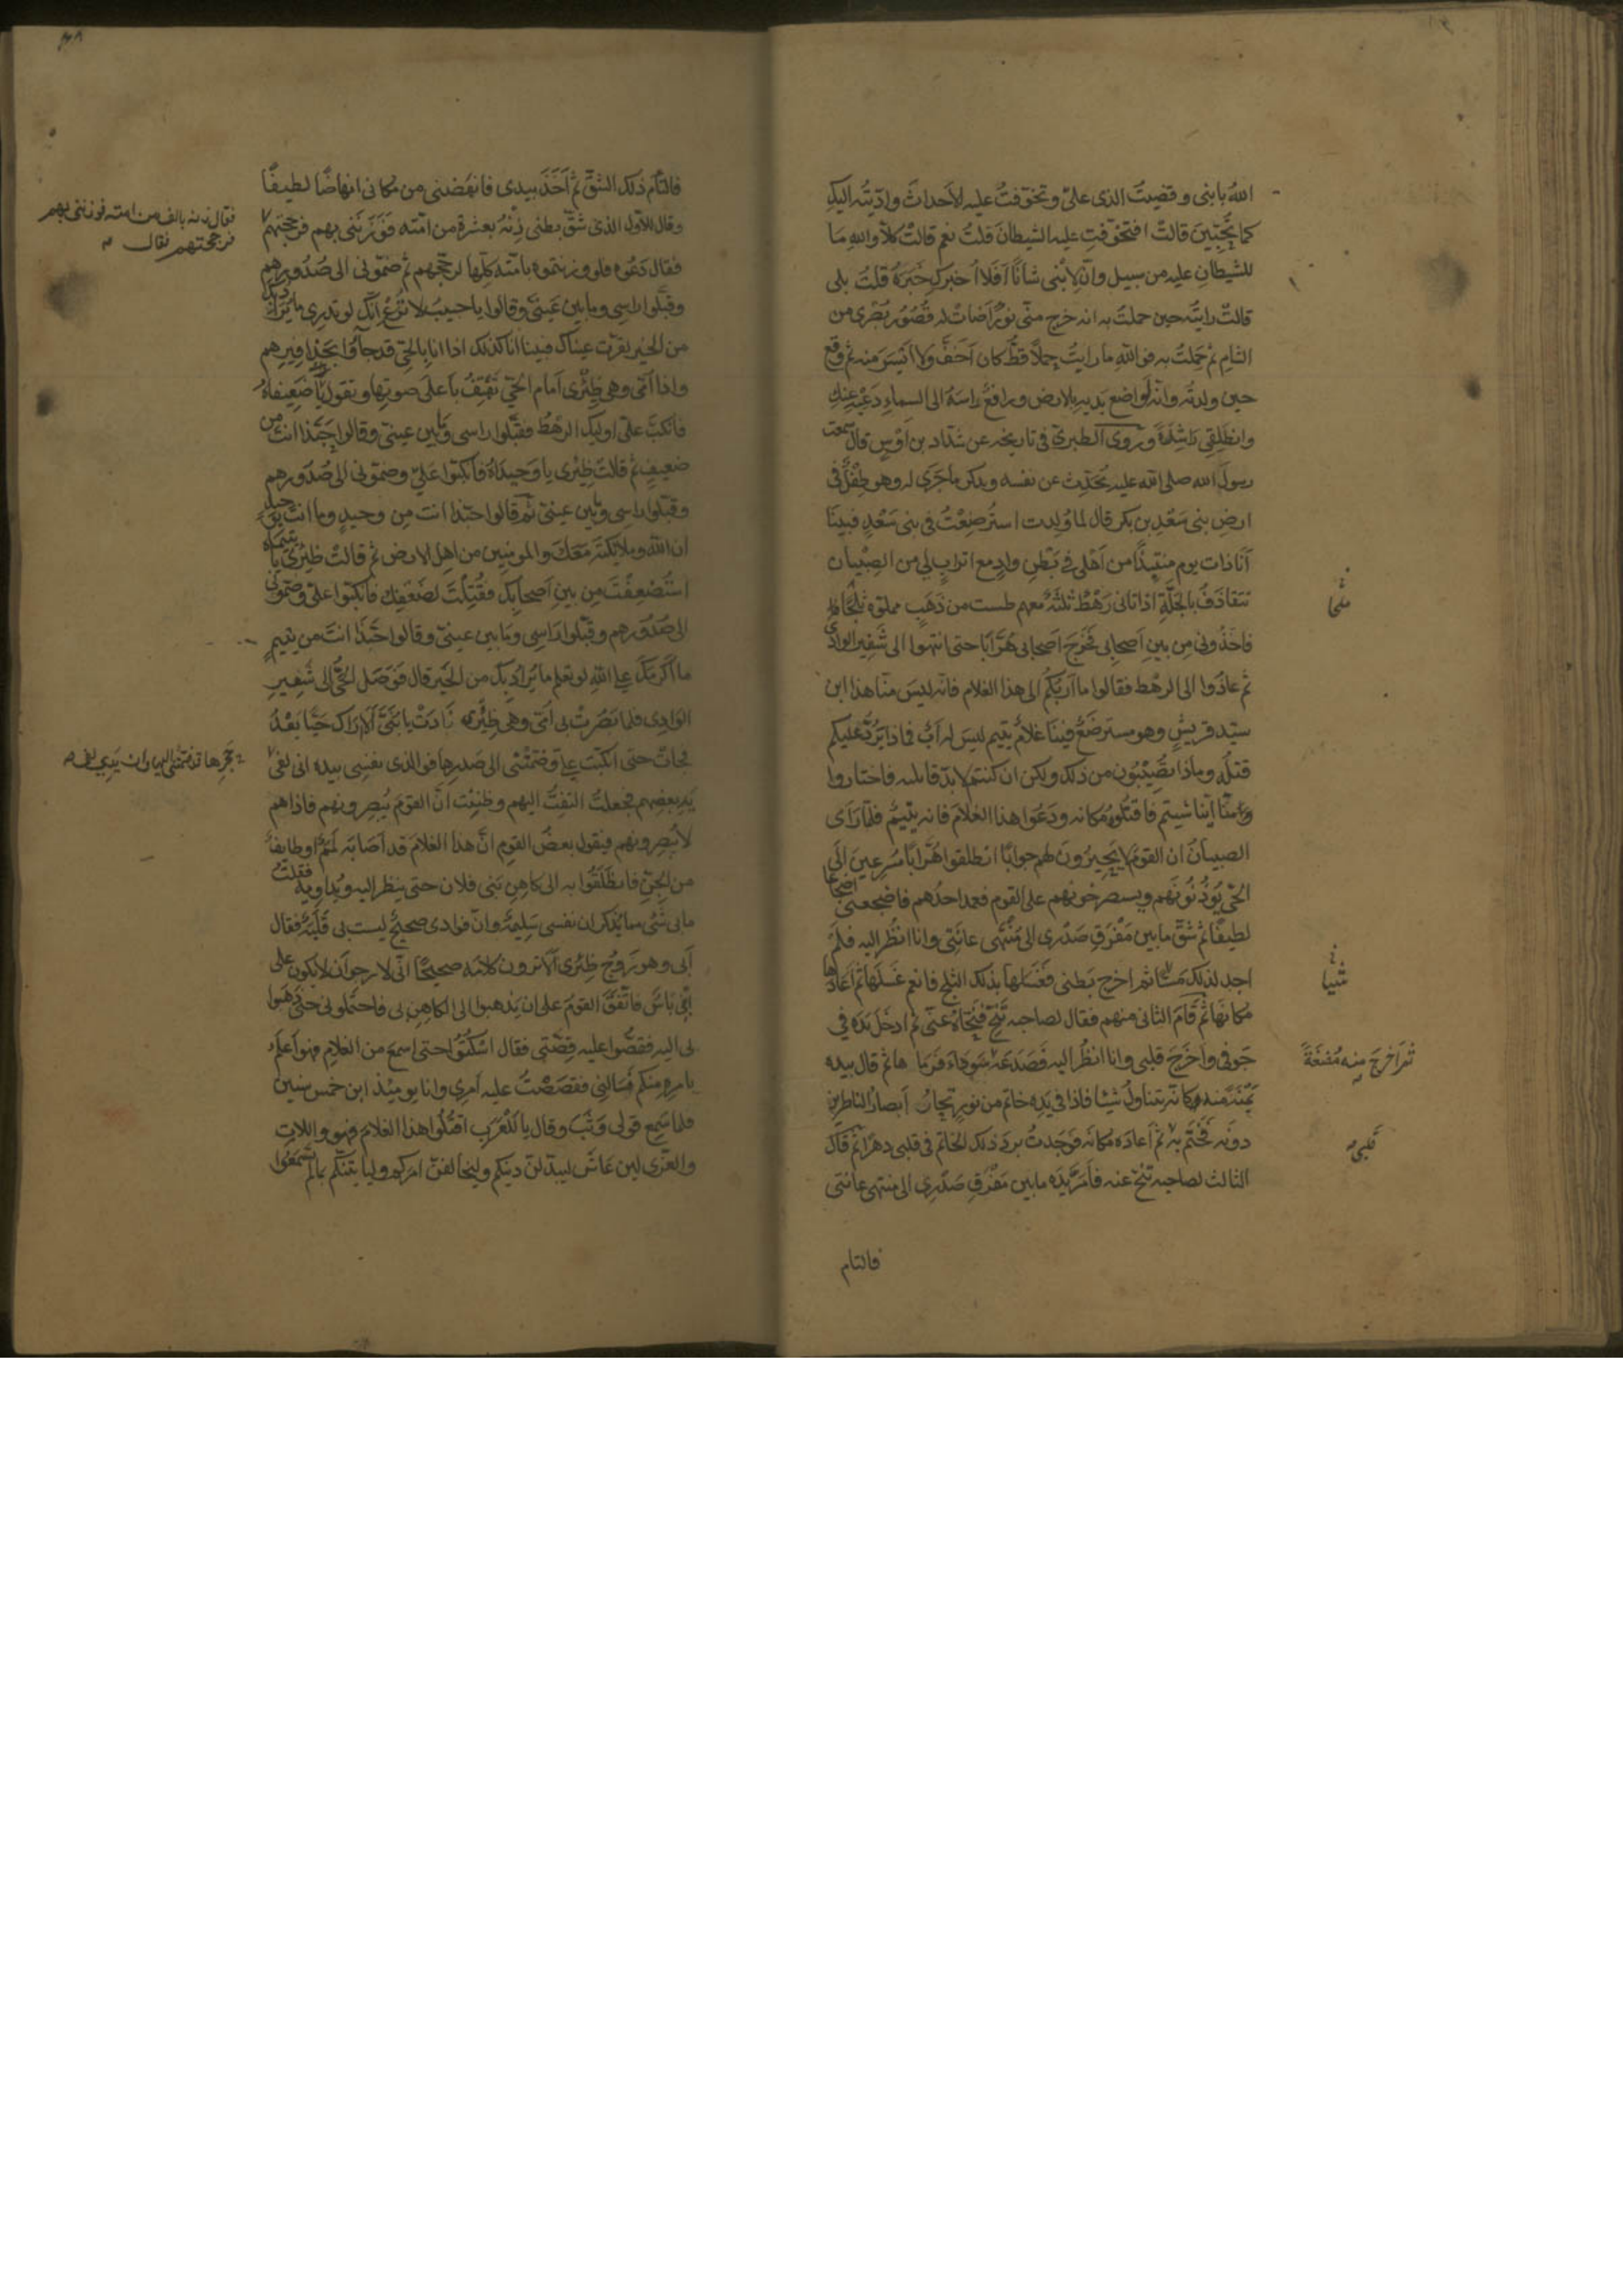 الله بابنى وقضيت الذى علىّ وتخوّفتُ عليه الأحداثَ وادّيتُه اليكِ
كما تُحِبّينَ قالتْ افتخوّفتِ عليه الشيطانَ قلتُ نعم قالتْ كلّا والله مَا
للشيطانِ عليه من سبيل وانّ لِابْنى شانًا اَفَلا اُخبركِ خَبَرَهُ قلتُ بلى
قالتْ رايتُ حين حملتُ به انه خرج منّى نورٌ اَضاتْ له قُصُور بُصْرى من
الشام ثم حَمَلتُ به فوالله ما رايتُ حملًا قطّ كان اَخَفَّ ولا اَيْسَرَ منه ثم وقع
حين ولدتُه وانه لَواضع يديه بالارض ورافعٌ راسَهُ الى السماءِ دَعيْهِ عنكِ
وانطلِقِى راشِدَةً ورَوى الطبرىّ فى تاريخه عن شدّاد بن اَوْسٍ قال سمعت
رسولَ الله صلى الله عليه يُحَدِّث عن نفسه ويذكر ما جَرَى له وهو طِفْلٌ فى
ارضِ بنى سَعْدِ بن بكر قال لما وُلِدت استُرضِعْتُ فى بنى سَعْدٍ فبينَا
اَنَا ذات يوم منتبِذًا من اَهْلى فى بَطْنِ وادٍ مع اترابٍ لى من الصِبْيان
نتقاذَفُ بالجَلَّةِ اذ اتانى رَهْطٌ ثلثةٌ معهم طست من ذَهَبٍ مملوّة ثلجًا
فاخَذُونى مِن بينِ اَصحابى فخرجَ اَصحابى هُرّابًا حتى انتهوا الى شَفيرِ الوادى
ثم عادُوا الى الرهْط فقالوا ما اَرَبُكُم الى هذا الغلام فانه ليسَ منّا هذا ابن
سيّد قريشٍ وهو مسترضَعٌ فينا غلامٌ يتيم ليسَ له اَبٌ فماذا يَرُدُّ عليكم
قتلُه وماذا تُصيْبُون من ذلك ولكن ان كنتم لا بدّ قاتليه فاختاروا
منّا اَيّنا شيتم فاقتلُوهُ مكانه ودَعُوا هذا الغلامَ فانه يتيمٌ فلمّا رَاَى
الصبيانُ ان القومَ لا يُحِيْرُونَ لهم جوابًا انطلقوا هُرّابًا مُسْرعينَ الَى
الحىّ يُؤذِنُونَهم ويستصرخونهم على القوم فعمد احدُهم فاضجعنى اضجاعًا
لطيفًا ثم شَقّ ما بين مَفْرَقِ صَدْرى الى مُنْتَهى عانَتى وانا انظُر اليه فلم
اجد لذلك مَسًّا ثم اخرج بَطنى فغسلها بذلك الثلج فانعم غَسْلَها ثم اَعادَها
مكانَها ثم قَامَ الثانى منهم فقال لصاحبه تَنَحَّ فنحّاهُ عنّى ثم ادخَلَ يَدَه فى
جَوفى واخرَجَ قلبى وانا انظُر اليه فصَدَعَه سَودَاءَ فَرمَا ها ثم قال بيده
يَمْنَةً منه وكانّه يتناولُ شيئا فاذا فى يَدِه خاتم من نورٍ تحارُ اَبصارُ الناظرين
دونَه فخَتَم به ثم اَعادَه مكانَه فوَجَدتُ بردَ ذلك الخاتم فى قلبى دهرًا ثم قالَ
الثالث لصاحبه تَنَحّ عنه فاَمَرَّ يَدَه ما بين مَفْرَقِ صَدْرِى الى منتهى عانتى
فالتام
ثلجا
شيئا
ثم اَخرجَ منه مُضغَةً
قلبى
فالتام ذلك الشقّ ثم اَخَذَ بيدى فانهَضَنى من مكانى انهاضًا لطيفًا
وقال الاوّل الذى شَقّ بطنى زِنْهُ بعشرة من امّته فَوَزَنَنى بهم فرجحتهم
فقال دَعُوه فلو وزنتموه بامّته كلّها لرجحهم ثم ضمّونى الى صُدُورهم
وقبَّلوا راسى وما بين عَينىّ وقالوا يا حبيبُ لا تُرَعْ انّك لو تدرِى ما يُرادُ بك
من الخير لقرّت عيناك فبينا انا كذلك اذا انا بالحىّ قد جاؤا بحذافِيرِهم
واذا اُمّى وهى ظِئْرى اَمامَ الحىّ تَهْتِفُ باَعلَى صوتها وتقول يا ضَعِيفاهُ
فانكبّ علىّ اوليك الرهْطُ فقبّلوا راسى وما بين عينىّ وقالوا حبّذا انت من
ضعيفٍ ثم قالتْ ظِئرى يا وَحيداهُ فانكبّوا عَلىّ وضمّونى الى صُدُورهم
وقبّلوا راسى وما بين عينىّ ثم قالوا حبّذا انت من وحيدٍ وما انت بوحيدٍ
ان الله وملايكتَه مَعَكَ والمومنِين من اهلِ الارض ثم قالتْ ظِئْرى يا يتيماه
استُضْعِفْتَ مِن بينِ اَصحابِكَ فقُتِلْتَ لضَعْفِك فانكبّوا علىّ وضمّونى
الى صُدُورهم وقبّلوا راسى وما بين عينىّ وقالوا حَبّذا انتَ من يتيمٍ
ما اَكرمَكَ على اللهِ لو تعلم ما يُرادُ بك من الخير قال فوَصَل الحىُّ الى شَفِيرِ
الوادِى فلما بَصُرتْ بى اُمّى وهى ظِئْرى نَادَتْ يا بُنَىَّ اَلا اَراكَ حَيًّا بَعْدُ
فجاتْ حتى انكبّت علىّ وضمّتْنى الى صَدرِها فوالذى نفسِى بيده انى لفى
يَدِ بعضِهم فجعلتُ التفتُ اليهم وظنِنْت انّ القومَ يُبصِرونهم فاذا هم
لا يُبصِرونهم فيقول بعضُ القومِ انّ هذا الغلامَ قد اَصابَه لَمَمٌ او طايفٌ
من الجِنّ فانطَلِقُوا به الى كاهِنِ بنى فلان حتى ينظر اليه ويُداويَهُ فقلتُ
ما بى شَىْ مما يُذكر ان نفسى سَلِيمَةٌ وانّ فؤادى صحيحٌ ليست بى قَلَبَةٌ فقال
اَبى وهو زَوجُ ظِئْرى اَلا ترون كلامَه صحيحًا انّى لارجو اَن لا يكون على
ابنى باسٌ فاتّفَقَ القومُ على ان يَذهبوا الى الكاهِنِ بى فاحتملونى حتى ذهبوا
بى اليه فقصّوا عليه قِصّتى فقال اسْكتُوا حتى اسمع من الغلامِ فهو اَعلَمُ
بامرِه منكم فسالنِى فقصَصْتُ عليه اَمرِى وانا يوميذ ابن خمس سنين
فلما سَمِع قولى وَثَبَ وقال يالَلْعَرَبِ اقتُلُوا هذا الغلام فهو واللاتِ
والعزّى لين عَاش ليبدّلن دينَكم وليخالفنّ امركم ولياتينكم بما لم تسمَعُوا
فقال زنه بالف من امته فوزننى بهم
فرجحتهم فقال
حَجرِها قد ضمّتنى اليها وان يَدِى لفى